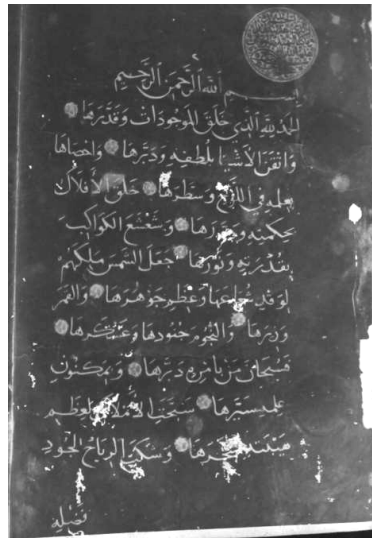 بسم الله الرحمن الرحيم
الحمد لله الذي خلق الموجودات وقدرها
واتقن الاشيا بلطفه ودبرها واحصاها
بعلمه في اللوح وسطرها خلق الافلاك
بحكمته ودورها وشعشع الكواكب
بقدرته ونورها جعل الشمس ملكهم
لوقد شعاعها وعظم جوهرها والقمر
وزيرها والنجوم جنودها وعسكرها
فسبحان من بامره دبرها وبمكنون
علمه سيرها سبحت الأملاك لعظم
هيبته وسخر الرياح لجود
فضله